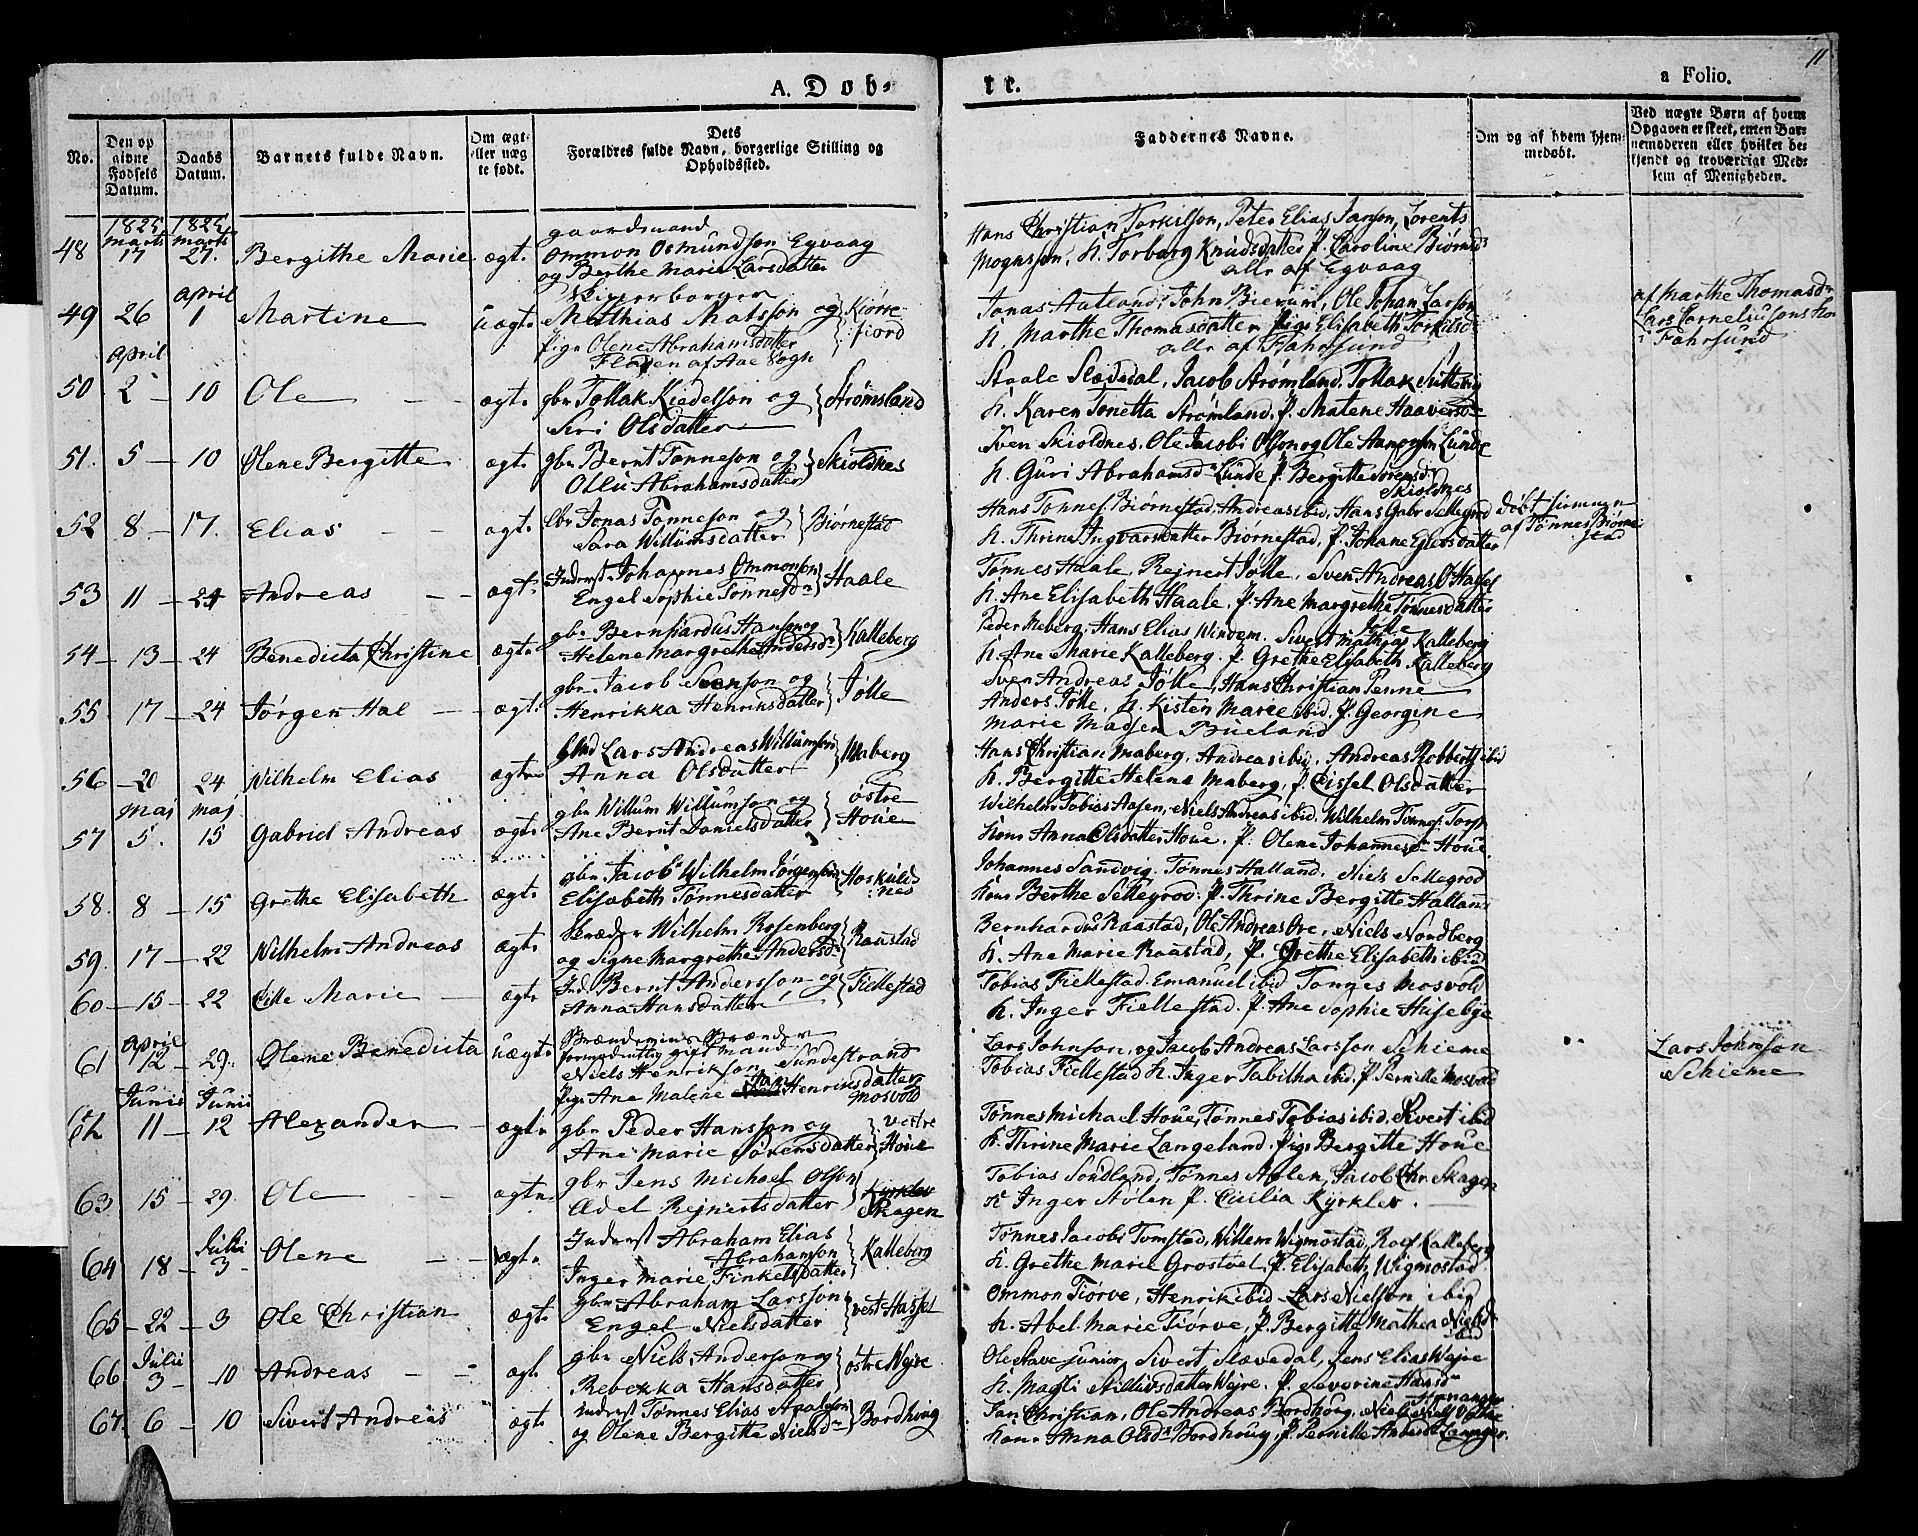 11
A. Døb-
te.
a Folio.
No.
Den op
givne
Fødsels
Datum.
Daabs
Datum.
Barnets fulde Navn.
Om ægt-
eller uæg
te født.
Dets
Forældres fulde Navn, borgerlige Stilling og
Opholdssted.
Faddernes Navne.
Om og af hvem hjem-
medøbt.
Ved uægte Børn af hvem
Opgaven er skeet, enten Bar-
nemoderen eller hvilket be-
kjendt og troværdigt Med-
lem af Menigheden.
1825
1825
marts
marts
48 17 27. Bergithe Marie ægt.
gaardmand
Ommon Osmundson Egvaag
og Berthe Marie Larsdatter
Hans Christian Torkilson, Peter Elias Janson, Lorents
Mognsson, K. Torborg Knudsdatter P. Caroline Biørnsd
alle af Egvaag
april
49 26 1 Martine uægt.
Mathias Matsson og Kiørre-
fiord
pige Olene Abrahamsdatter
Fladen af Aae Sogn
Jonas Aatland, John Bierum, Ole Johan Larson
K. Marthe Thomasdatter pige Elisabeth Torkilsd
alle af Fahrsund
af Marthe Thomasd
Lars Corneliusons Kon
i Fahrsund
april
50 2 10 Ole ægt.
gbr Tollak Kiedelson og Strømsland
Siri Olsdatter
Staale Slædedal, Jacob Strømland, Tollak
K. Karen Tonetta Strømland. P. Malene Haaversd
51. 5 10 Olene Bergitte ægt.
gbr Bernt Tønneson og Skioldnes
Olli Abrahamsdatter
Sven Skioldnes. Ole Jacobi Olson og Ole Aanonsen Lunde
K. Guri Abrahamsd Lunde P. Bergitte Sorensd
Skioldnes
52 8 17. Elias ægt.
gbr Jonas Tønneson og Biørnestad
Sara Willumsdatter
Hans Tønnes Biørnestad, Andreas ibid, Hans Gabr Sellegrod
K. Thrine Ingvarsdatter Biørnestad, P. Johane Eilertsdatter
døbt hiemme
af Tønnes Biørne-
stad
53 11 24 Andreas ægt.
Inderst Johannes Ommonson Haale
Engel Sophie Tønnesd
Tønnes Haale, Rejnert Jølle, Sven Andreas O Hassel
K. Ane Elisabeth Haale, P. Ane Margrethe Tønnesdatter
Jølle
54 13 24 Benedicta Christine ægt.
gbr Bernhardus Hanson og Kalleberg
Helene Margrethe Andersd
Peder Meberg, Hans Elias Windem. Sivert Mathias Kalleberg
K. Ane Marie Kalleberg. P. Grethe Elisabeth Kalleberg
55 17 24 Jørgen Hal ægt.
gbr Jacob Svenson og Jølle
Henrikka Henriksdatter
Sven Andreas Jølle, Hans Christian Penne
Anders Jølle, K. Kisten Marie ibid. P. Georgine
Marie Madsen Bueland
56 20 24 Wilhelm Elias ægte
Lars Andreas Willumson Maberg
Anna Olsdatter
Hans Christian Maberg, Andreas ibid, Andreas Robberts ibid
K. Bergitte Helene Maberg, P. Cissel Olsdatter
maj
maj
57 5. 15 Gabriel Andreas ægt.
gbr Willum Willumson og østre
Ane Bernt Danielsdatter Houe
Wilhelm Tobias Aasen, Niels Andreas ibid. Wilhelm Tønnes. Torp
Kone Anna Olsdatter Houe. P. Olene Johannesd Houe
58. 8 15 Grethe Elisabeth ægt.
gbr Jacob Wilhelm Jørgenson Hoskuld-
nes
Elisabeth Tønnesdatter
Johannes Sandvig. Tønnes Halland. Niels Sellegrod
Kone Berthe Sellegrod. P. Thrine Bergitte Halland
59. 17 22 Wilhelm Andreas ægt.
Skræder Wilhelm Rosenberg Raastad
og Signe Margrethe Andersd
Bernhardus Raastad, Ole Andreas Øre, Niels Nordberg
K. Ane Marie Raastad, P. Grethe Elisabeth ibid
60 15 22 Cille Marie ægt.
Ind. Bernt Andersson og Fiellestad
Anna Hansdatter
Tobias Fiellestad Emanuel ibid Tonnes Mosvold
K. Inger Fiellestad. P. Ane Sophie Huseby
april
61 12 29. Olene Benedicta uægt.
formodentlig gift mand
Niels Henrikson Sundestrand
pige Ane Malene Hans Henriksdatter
Mosvold
Lars Johnson, og Jacob Andreas Larsson Schieme
Tobias Fiellestad K. Inger Tabitha ibid. P. Pernille Mosvold
Lars Johnson
Schieme
Junii
Junii
62 11 12 Alexander ægt.
gbr Peder Hansson og vestre
Ane Marie Sørensdatter Houe
Tønnes Michael Houe, Tønnes Tobias ibid. Sivert ibid
K. Thrine Marie Langeland. pige Bergitte Houe
63 15 29. Ole ægte
gbr Jens Michael Olson Kyrklev
Ædel Rejnertsdatter Skagen
Tobias Sundland, Tønnes Stolen, Jacob Chr. Skagen
K Inger Stolen P. Cicilia Kyrklev.
Julii
64 18 3 Olene ægt.
Inderst Abraham Elias
Abrahamson Kalleberg
Inger Marie Finkelsdatter
Tønnes Jacobi Tomstad, Willem Wigmostad, Rolf Kalleberg
K. Grethe Marie Grostøel, P. Elisabeth Wigmostad
65 22 3 Ole Christian ægt.
gbr Abraham Larsson vest Hassel
Engel Nielsdatter
Ommon Tiørve, Henrik ibid Lars Nielson ibid
K. Abel Marie Tiørve, P. Bergitte Mathea Nielsd
ibid
Julii
66 3 10 Andreas ægt.
gbr Niels Anderson og østre Wejre
Rebekka Hansdatter
Ole Stave junior, Sivert Slævedal, Jens Elias Wejre
K. Magli Nillisdatter Wejre. P. Severine Hansd
67. 6 10 Sivert Andreas ægt.
Inderst Tønnes Elias Aralson Bordhoug
og Olene Bergitte Nielsd
Jan Christian, Ole Andreas Bordhoug, Niels
Kone Anna Olsd Bordhoug P. Pernille